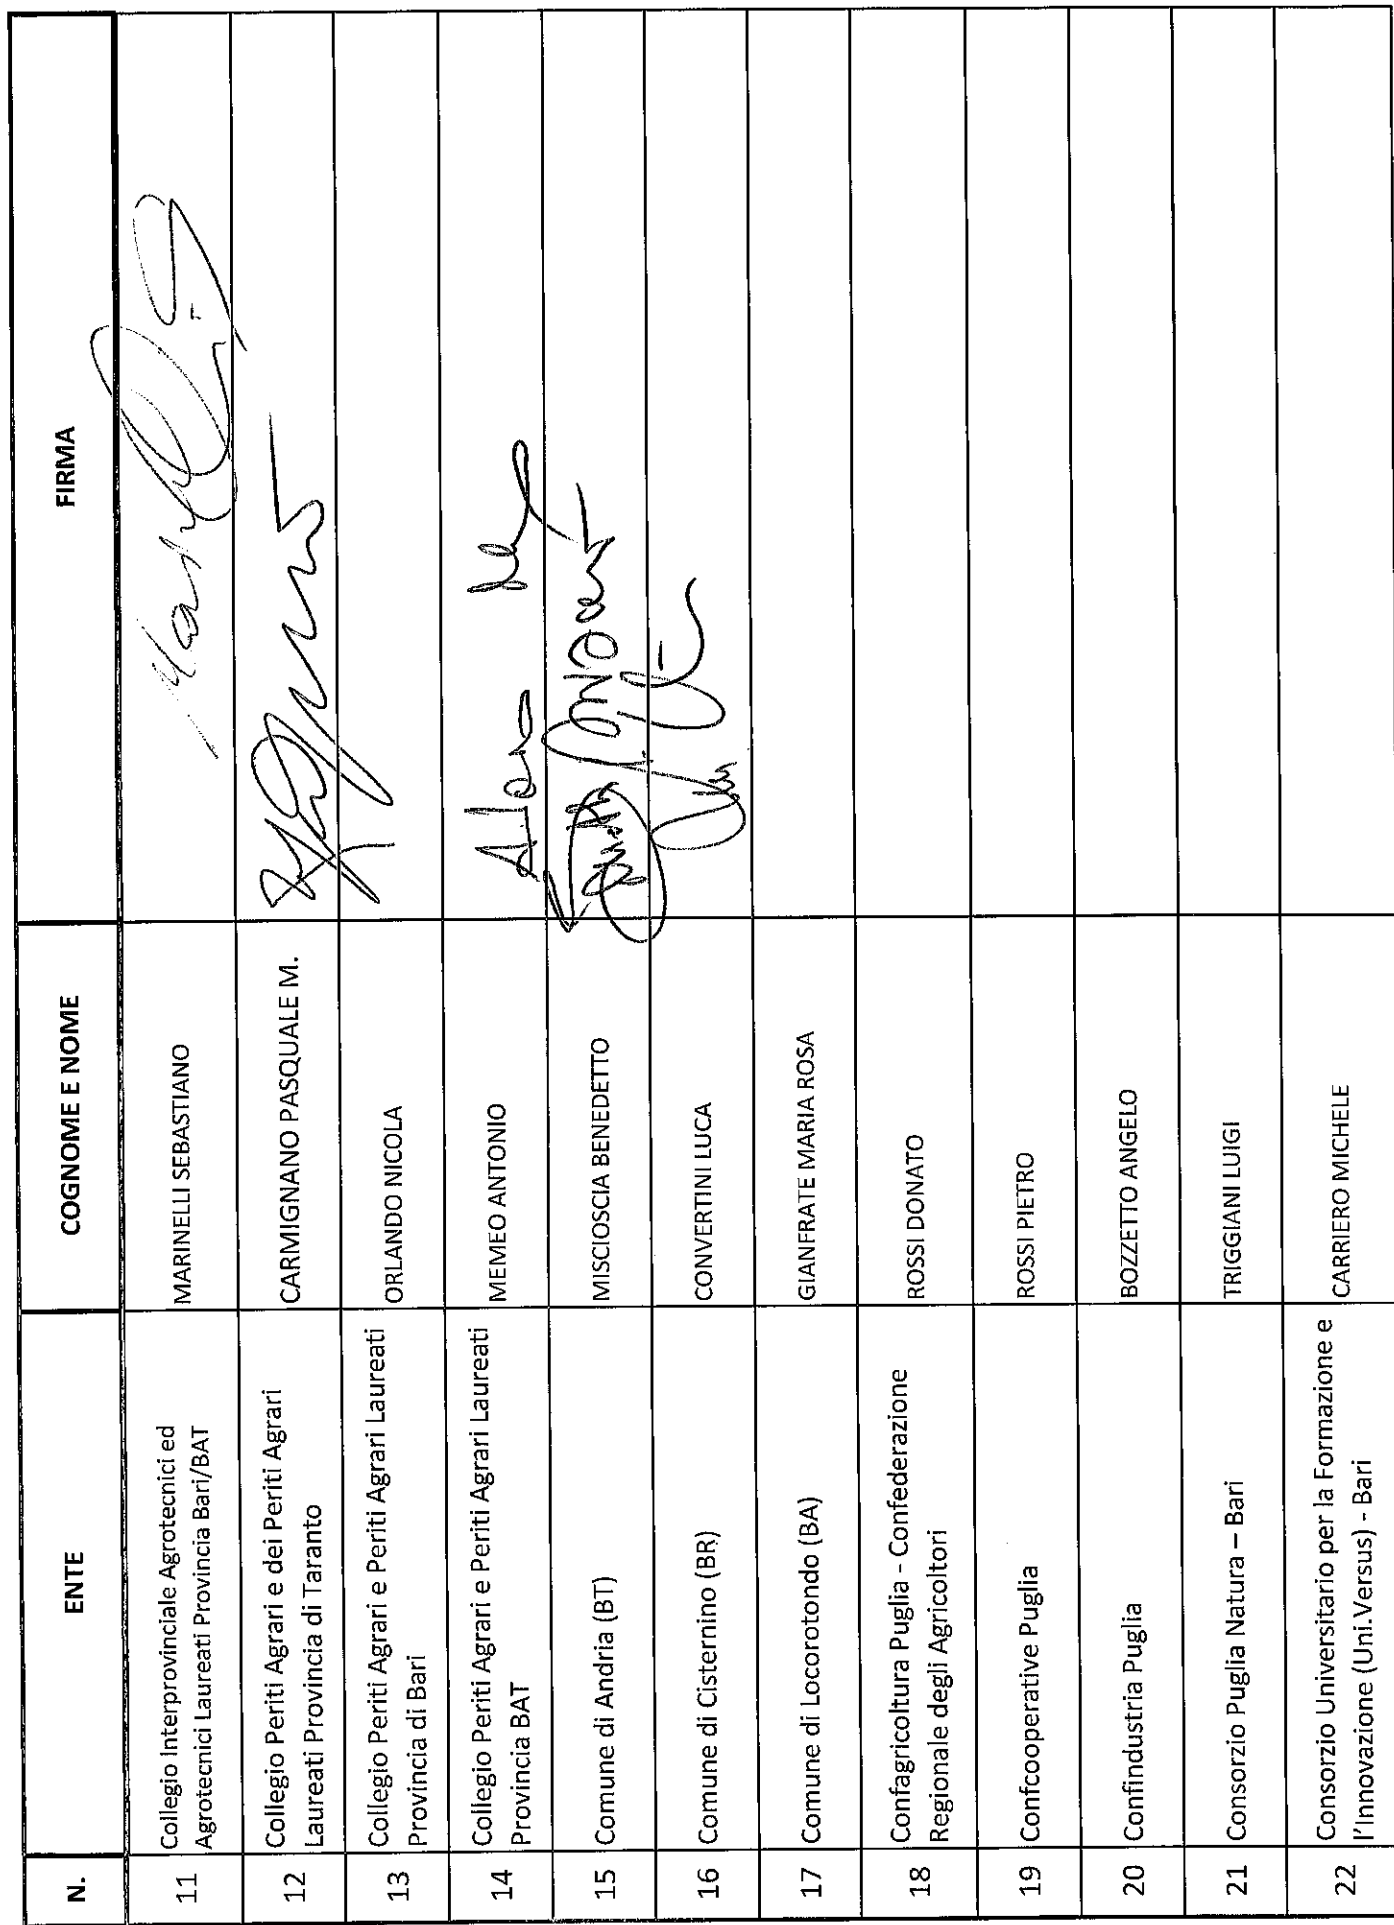 N. ENTE COGNOME E NOME FIRMA
11 Collegio Interprovinciale Agrotecnici ed
Agrotecnici Laureati Provincia Bari/BAT MARINELLI SEBASTIANO
12 Collegio Periti Agrari e dei Periti Agrari
Laureati Provincia di Taranto CARMIGNANO PASQUALE M.
13 Collegio Periti Agrari e Periti Agrari Laureati
Provincia di Bari ORLANDO NICOLA
14 Collegio Periti Agrari e Periti Agrari Laureati
Provincia BAT MEMEO ANTONIO
15 Comune di Andria (BT) MISCIOSCIA BENEDETTO
16 Comune di Cisternino (BR) CONVERTINI LUCA
17 Comune di Locorotondo (BA) GIANFRATE MARIA ROSA
18 Confagricoltura Puglia - Confederazione
Regionale degli Agricoltori ROSSI DONATO
19 Confcooperative Puglia ROSSI PIETRO
20 Confindustria Puglia BOZZETTO ANGELO
21 Consorzio Puglia Natura – Bari TRIGGIANI LUIGI
22 Consorzio Universitario per la Formazione e
l'Innovazione (Uni.Versus) - Bari CARRIERO MICHELE